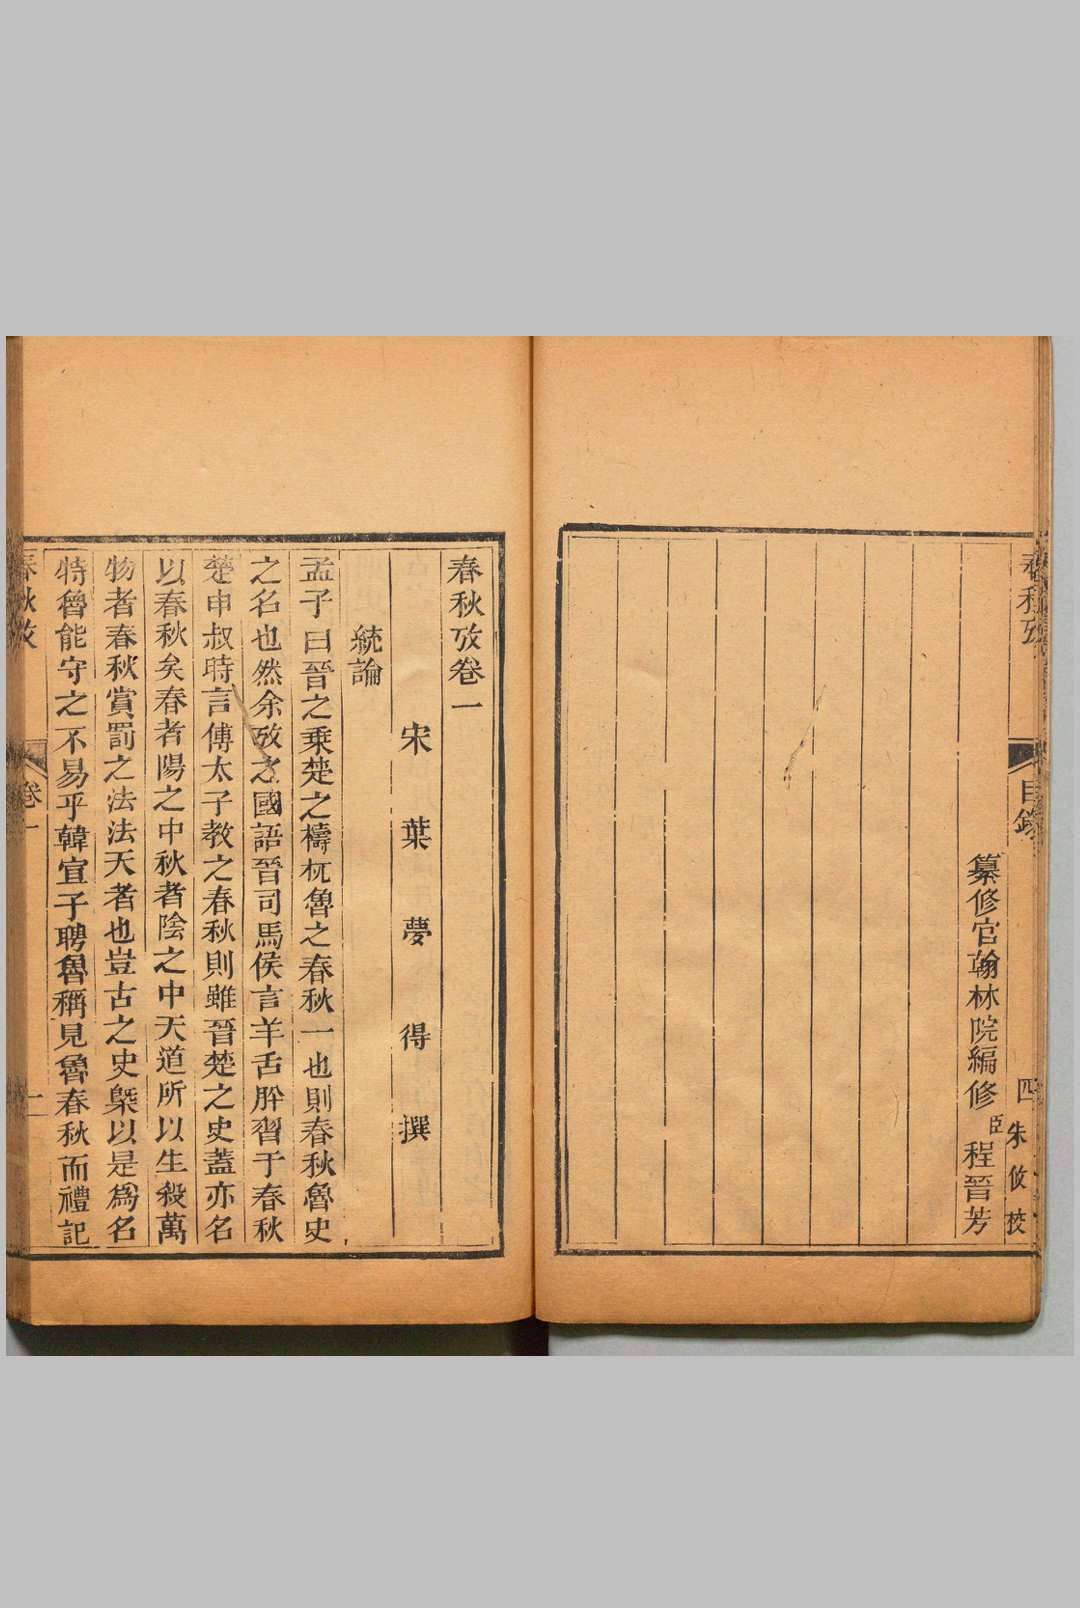 春秋攷
目錄
四
朱攸挍
纂修官翰林院編修臣程晉芳
春秋攷卷一
宋葉夢得撰
統論
孟子曰晉之乗楚之檮杌魯之春秋一也則春秋魯史
之名也然余攷之國語晉司馬侯言羊舌肸習于春秋
楚申叔時言傅太子教之春秋則雖晉楚之史蓋亦名
以春秋矣春者陽之中秋者陰之中天道所以生殺萬
物者春秋賞罰之法法天者也豈古之史槩以是爲名
特魯能守之不易乎韓宣子聘魯稱見魯春秋而禮記
春秋攷
卷一
一